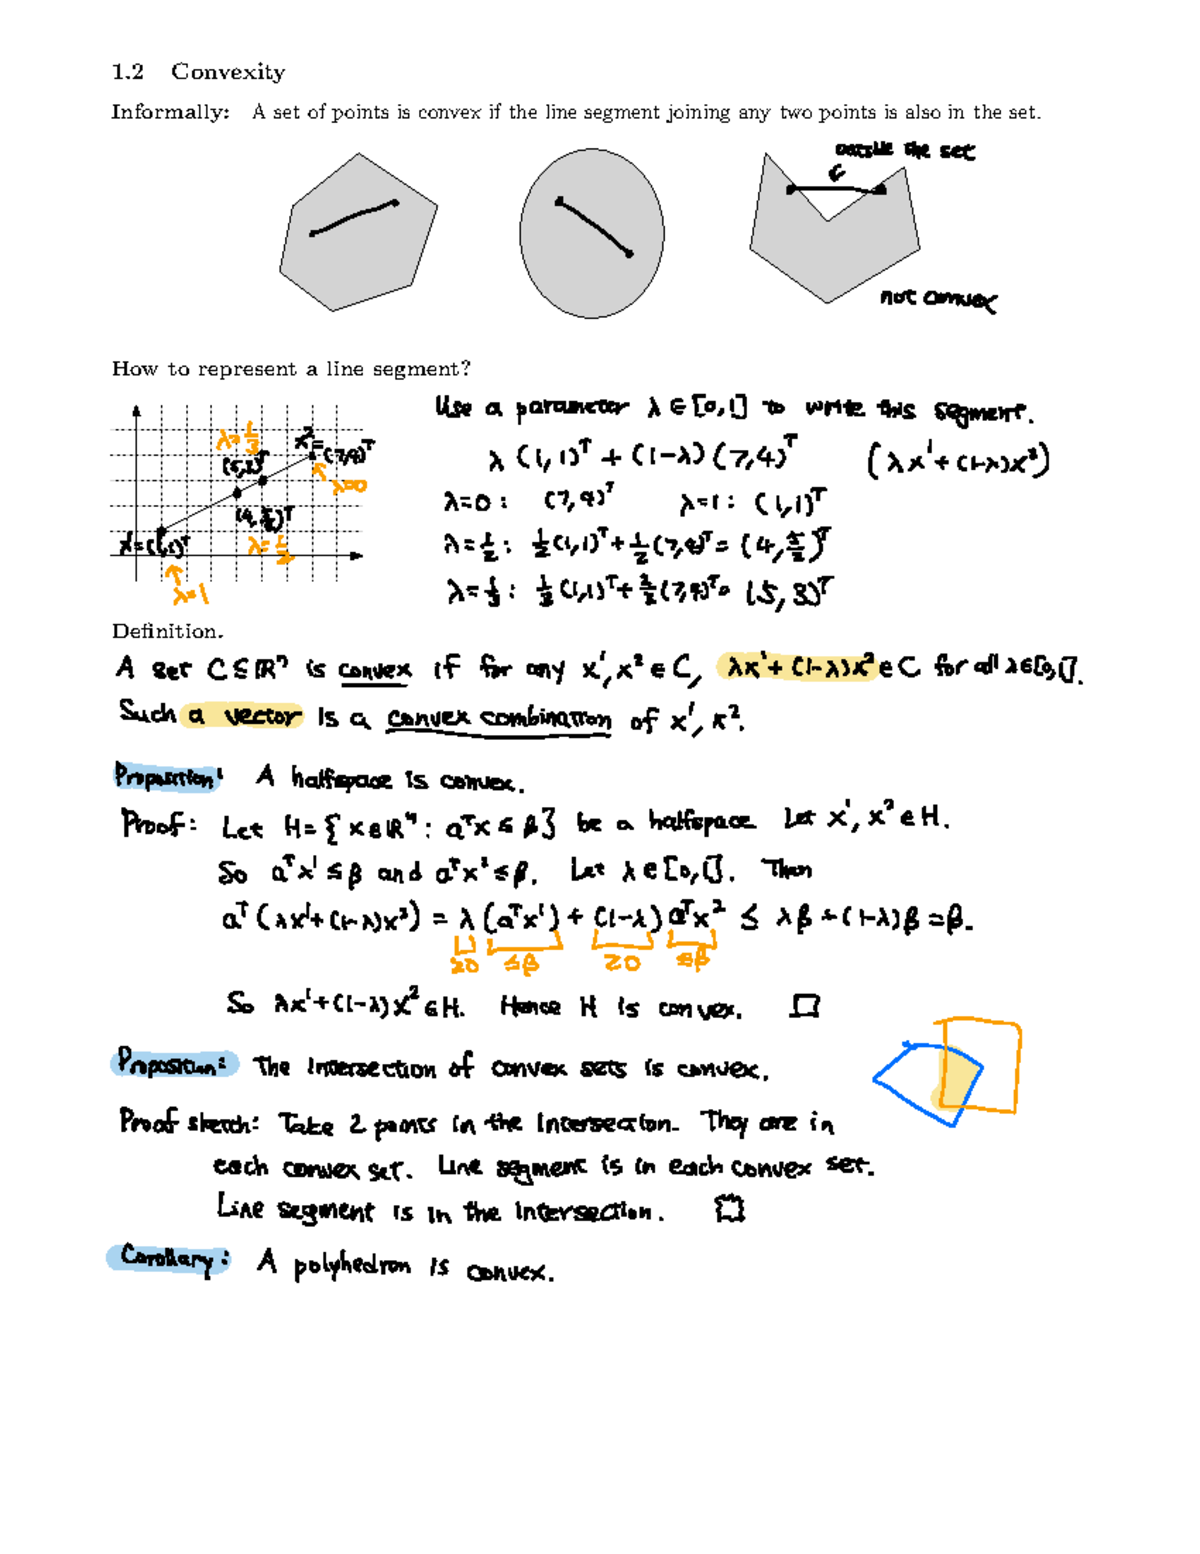 1.2 Convexity
Informally: A set of points is convex if the line segment joining any two points is also in the set.
outside the set
not convex
How to represent a line segment?
Use a parameter λ ∈ [0,1] to write this segment.
λ(1,1)ᵀ + (1-λ)(7,4)ᵀ (λx¹+(1-λ)x²)
λ=0: (7,4)ᵀ λ=1: (1,1)ᵀ
λ=1/2: 1/2(1,1)ᵀ+1/2(7,4)ᵀ= (4,5/2)ᵀ
λ=1/3: 1/3(1,1)ᵀ+2/3(7,4)ᵀ= (5,3)ᵀ
λ=1/3
x²=(7,4)ᵀ
(5,3)ᵀ
λ=0
(4,5/2)ᵀ
x¹=(1,1)ᵀ
λ=1/2
λ=1
Definition.
A set C⊆ℝⁿ is convex if for any x¹,x²∈C, λx¹+(1-λ)x²∈C for all λ∈[0,1].
Such a vector is a convex combination of x¹,x².
Proposition: A halfspace is convex.
Proof: Let H={x∈ℝⁿ: aᵀx≤β} be a halfspace Let x¹,x²∈H.
So aᵀx¹≤β and aᵀx²≤β. Let λ∈[0,1]. Then
aᵀ(λx¹+(1-λ)x²) = λ(aᵀx¹)+(1-λ)aᵀx² ≤ λβ+(1-λ)β=β.
≥0 ≤β ≥0 ≤β
So λx¹+(1-λ)x²∈H. Hence H is convex. □
Proposition: The intersection of convex sets is convex.
Proof sketch: Take 2 points in the intersection. They are in
each convex set. Line segment is in each convex set.
Line segment is in the intersection. □
Corollary: A polyhedron is convex.